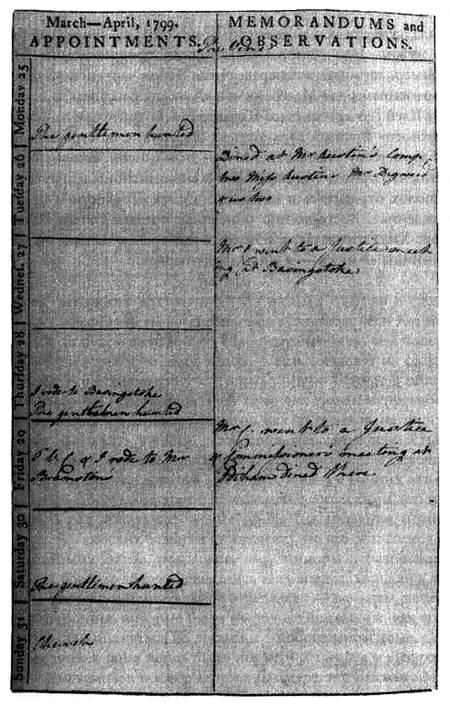 March—April, 1799.
APPOINTMENTS.
MEMORANDUMS and
OBSERVATIONS.
The Vine
Monday 25
The gentlemen hunted
Tuesday 26
Dined at Mr Austen's Comp
two Miss Austens Mr Digweed
& us two
Wednes. 27
Mr C went to a Justice meet
ing at Basingstoke
Thursday 28
I rode to Basingstoke
The gentlemen hunted
Friday 29
& I rode to Mr
Bramstons
Mr C. went to a Justice
& Commissioners meeting at
Odiham dined there
Saturday 30
The gentlemen hunted
Sunday 31
Church